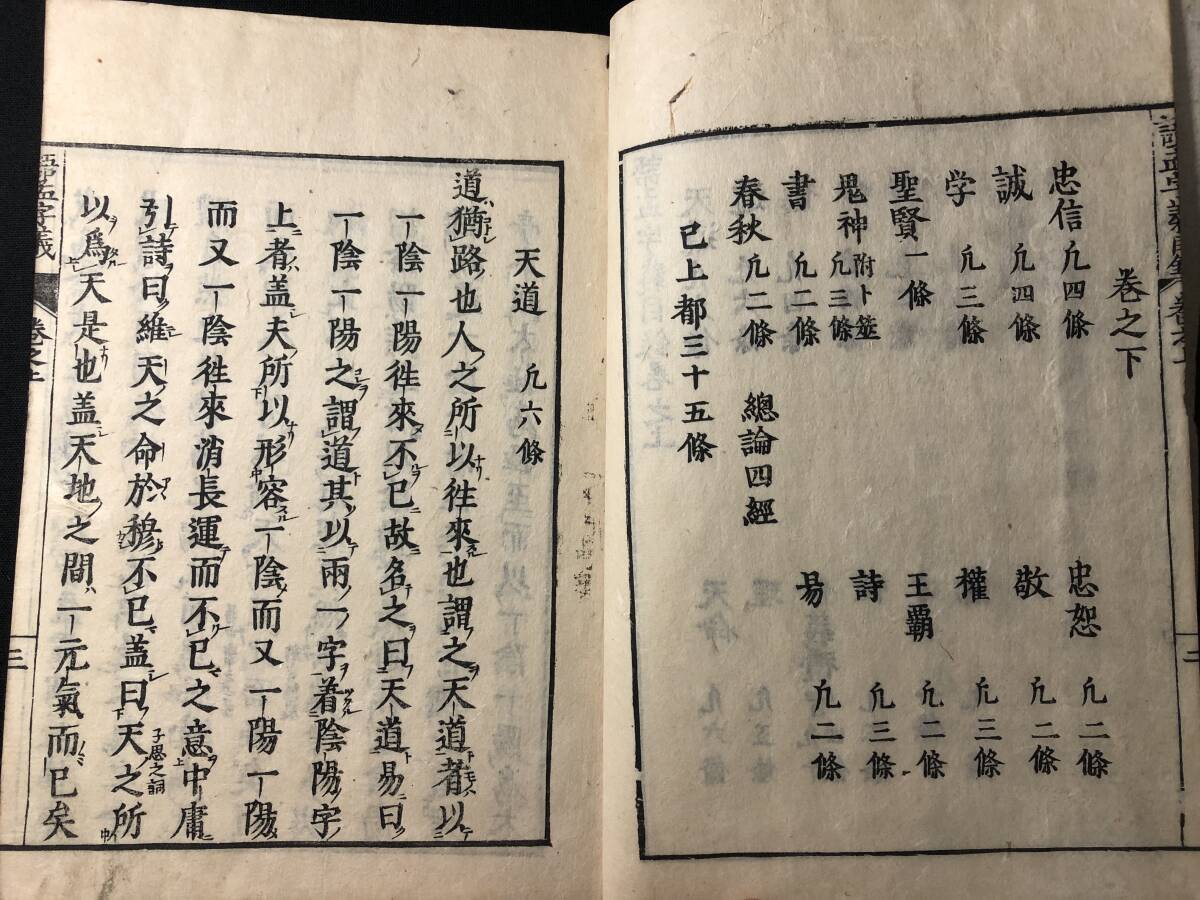 卷之下
忠信 凢四條 忠恕 凢二條
誠 凢四條 敬 凢二條
学 凢三條 權 凢三條
聖賢 一條 王覇 凢二條
鬼神 附卜筮 凢三條 詩 凢三條
書 凢二條 易 凢二條
春秋 凢二條 總論四經
已上都三十五條
天道 凢六條
道猶路也人之所以徃來也謂之天道者以
一陰一陽徃來不已故名之曰天道易曰
一陰一陽之謂道其以兩一字着陰陽字
上者盖夫所以形容一陰而又一陽一陽
而又一陰徃來消長運而不已之意中庸
引詩曰維天之命於穆不已盖曰天之所
子思之詞
以爲天是也盖天地之間一元氣而已矣
語孟字義 卷之上 三